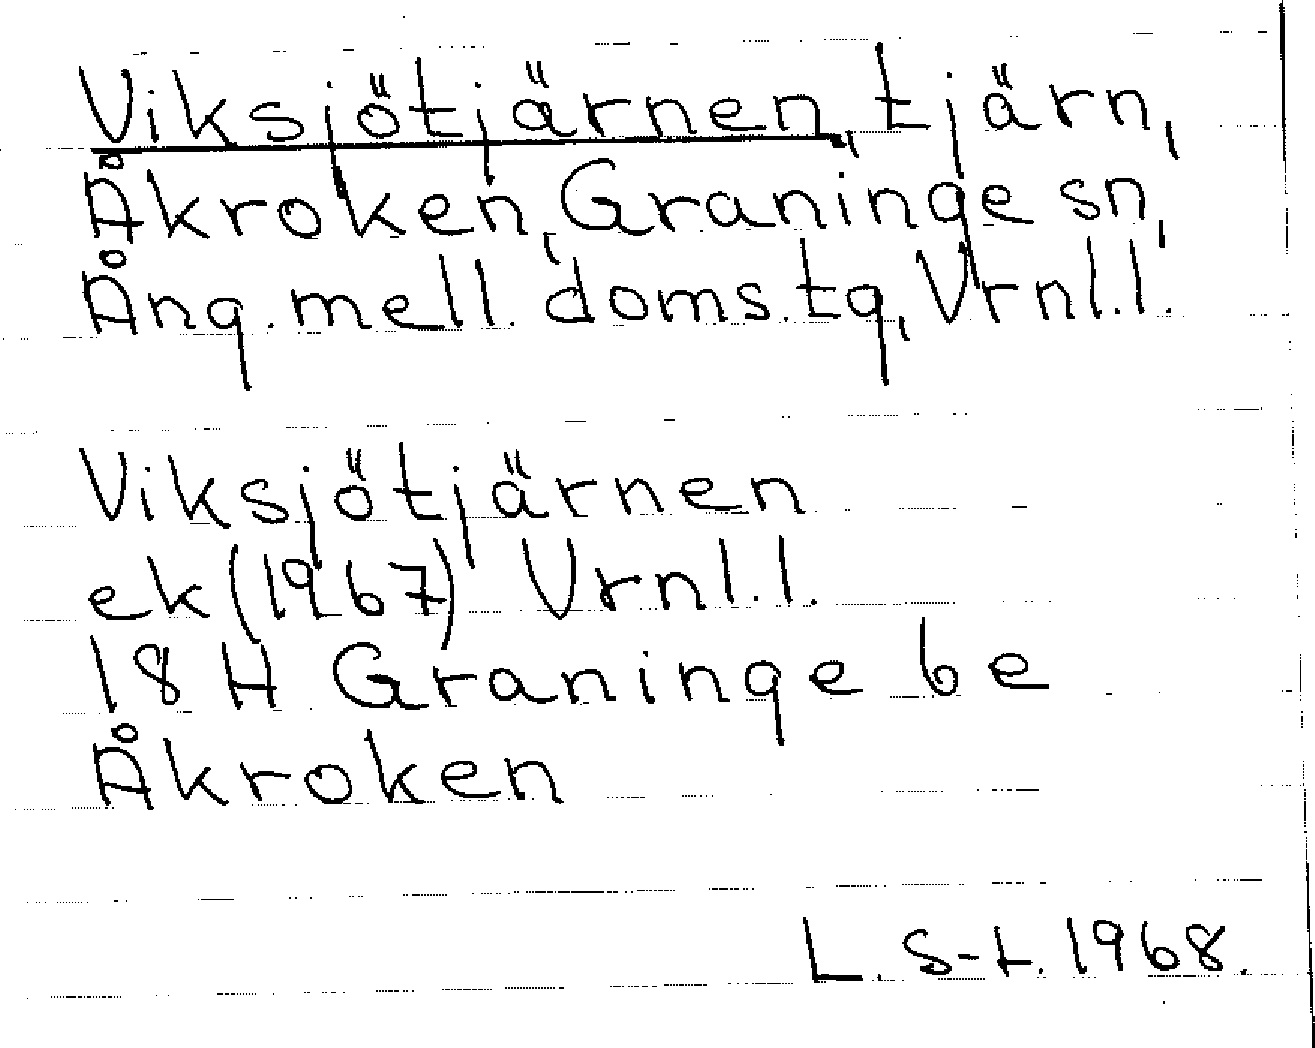 Viksjötjärnen, tjärn,
Åkroken, Graninge sn,
Ång. mell. doms.tg, Vrnl.l.
Viksjötjärnen
ek (1967) Vrnl.l.
18 H Graninge be
Åkroken
L. S-t. 1968.